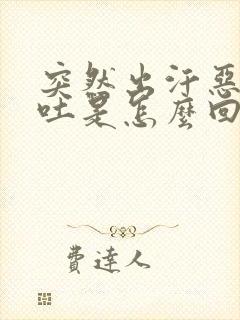 突然出汗惡
吐是怎麼回
費達人